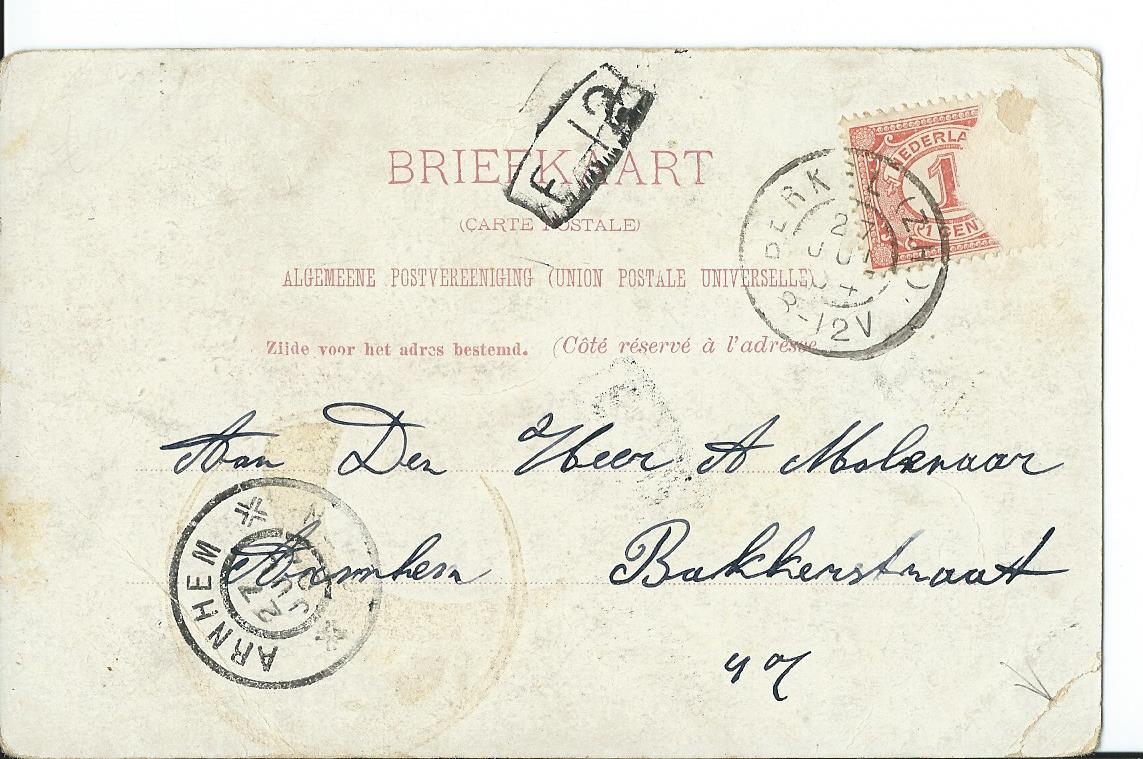 BRIEFKAART
(CARTE POSTALE)
ALGEMEENE POSTVEREENIGING (UNION POSTALE UNIVERSELLE)
Zijde voor het adres bestemd. (Côté réservé à l'adresse
NEDERLA
1
1 CEN
8-12V
Aan Den Heer A Molenaar
Arnhem Bakkerstraat
ARNHEM